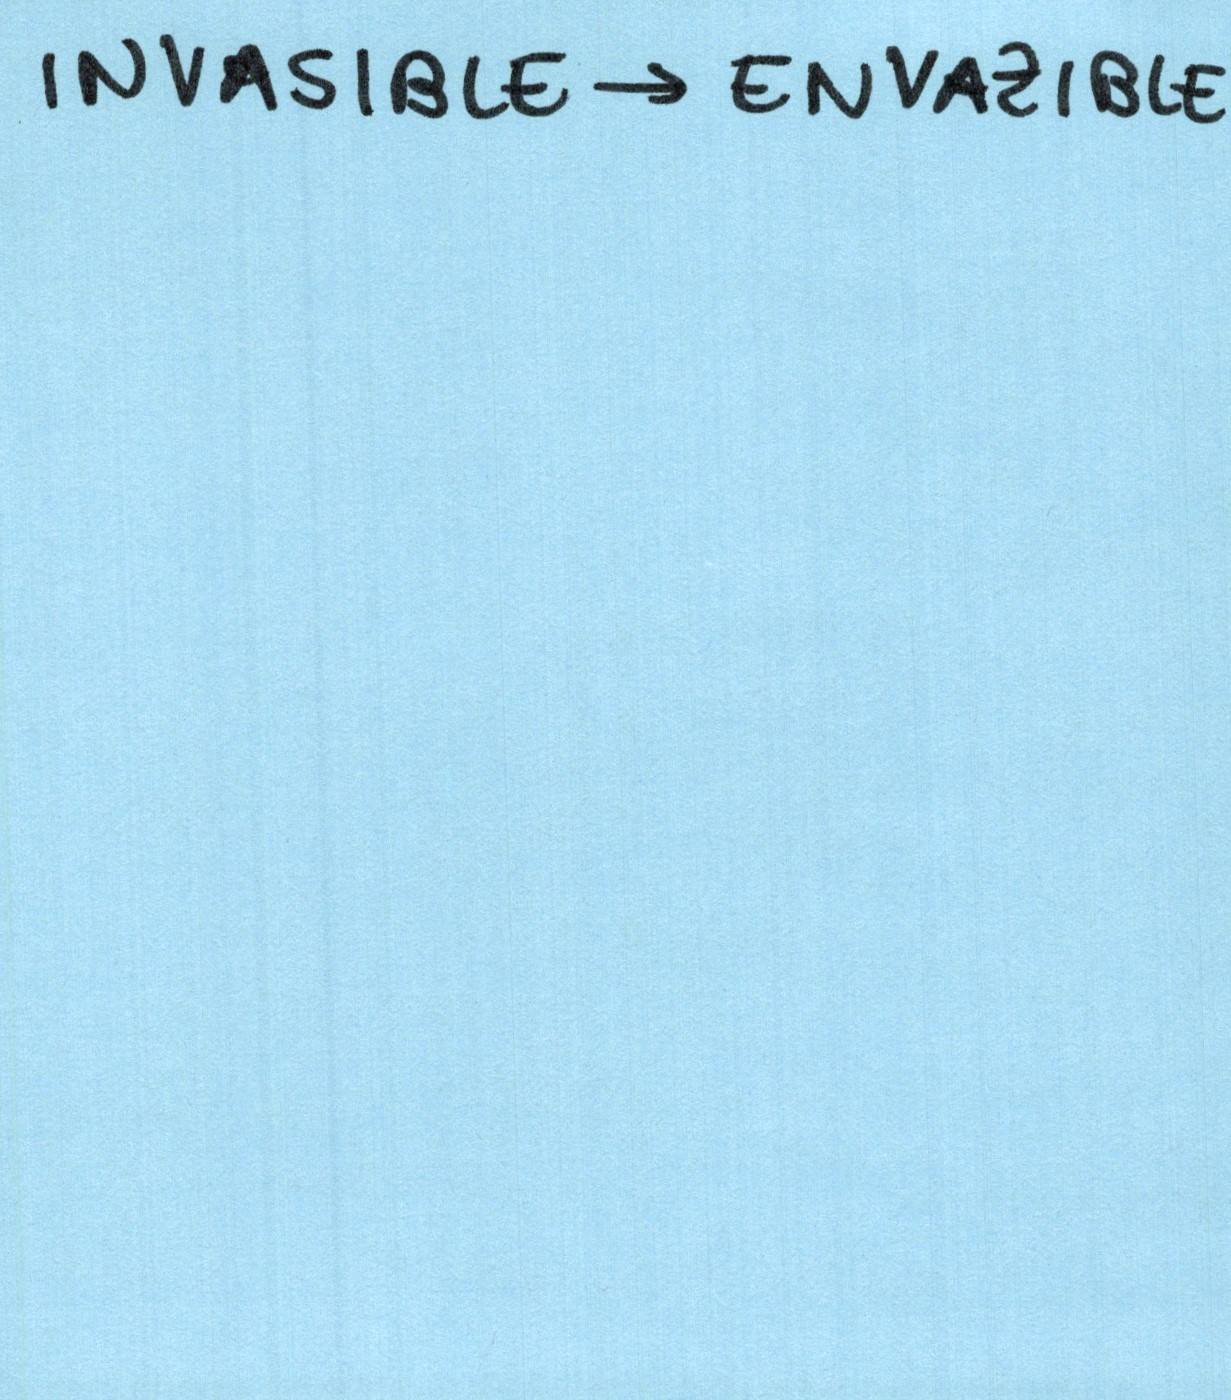 INVASIBLE → ENVAZIBLE